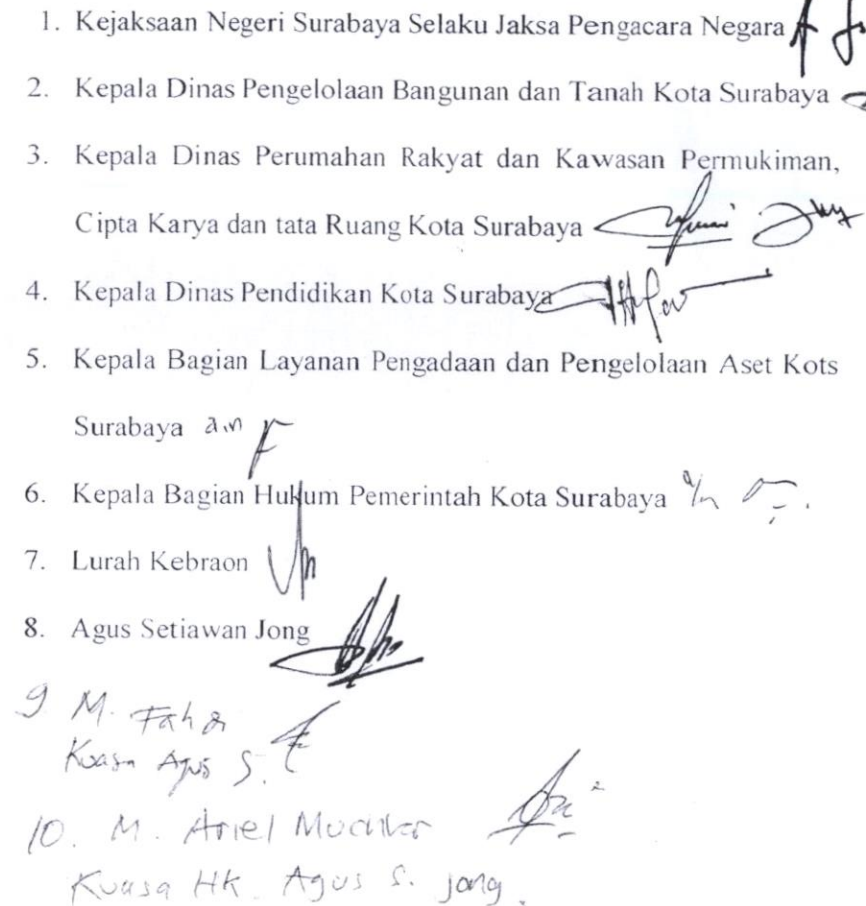 1. Kejaksaan Negeri Surabaya Selaku Jaksa Pengacara Negara
2. Kepala Dinas Pengelolaan Bangunan dan Tanah Kota Surabaya
3. Kepala Dinas Perumahan Rakyat dan Kawasan Permukiman,
Cipta Karya dan tata Ruang Kota Surabaya
4. Kepala Dinas Pendidikan Kota Surabaya
5. Kepala Bagian Layanan Pengadaan dan Pengelolaan Aset Kots
Surabaya a.n
6. Kepala Bagian Hukum Pemerintah Kota Surabaya a/n
7. Lurah Kebraon
8. Agus Setiawan Jong
9 M.
Kuasa Agus S.
10. M. Ariel
Kuasa HK. Agus S. jong.